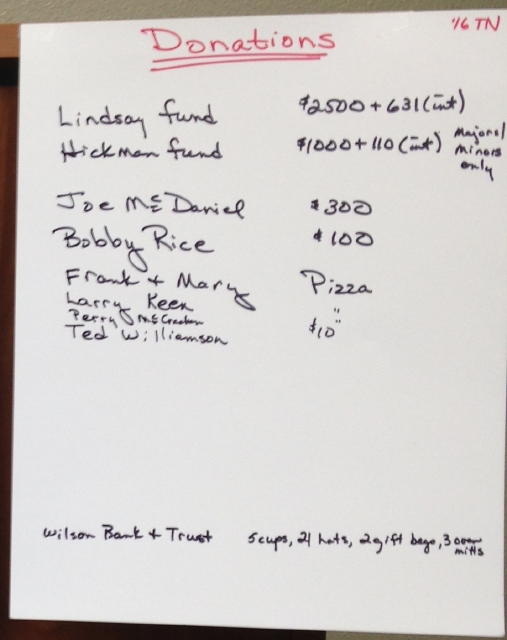 '16 TN
Donations
Lindsay fund $2500 + 631 (int)
Hickman fund $1000 + 110 (int) Majors/
minors
only
Joe McDaniel $300
Bobby Rice $100
Frank + Mary Pizza
Larry Keen "
Perry McCracken "
Ted Williamson $10
Wilson Bank + Trust 5 cups, 21 hats, 2 gift bags, 3 oven
mitts